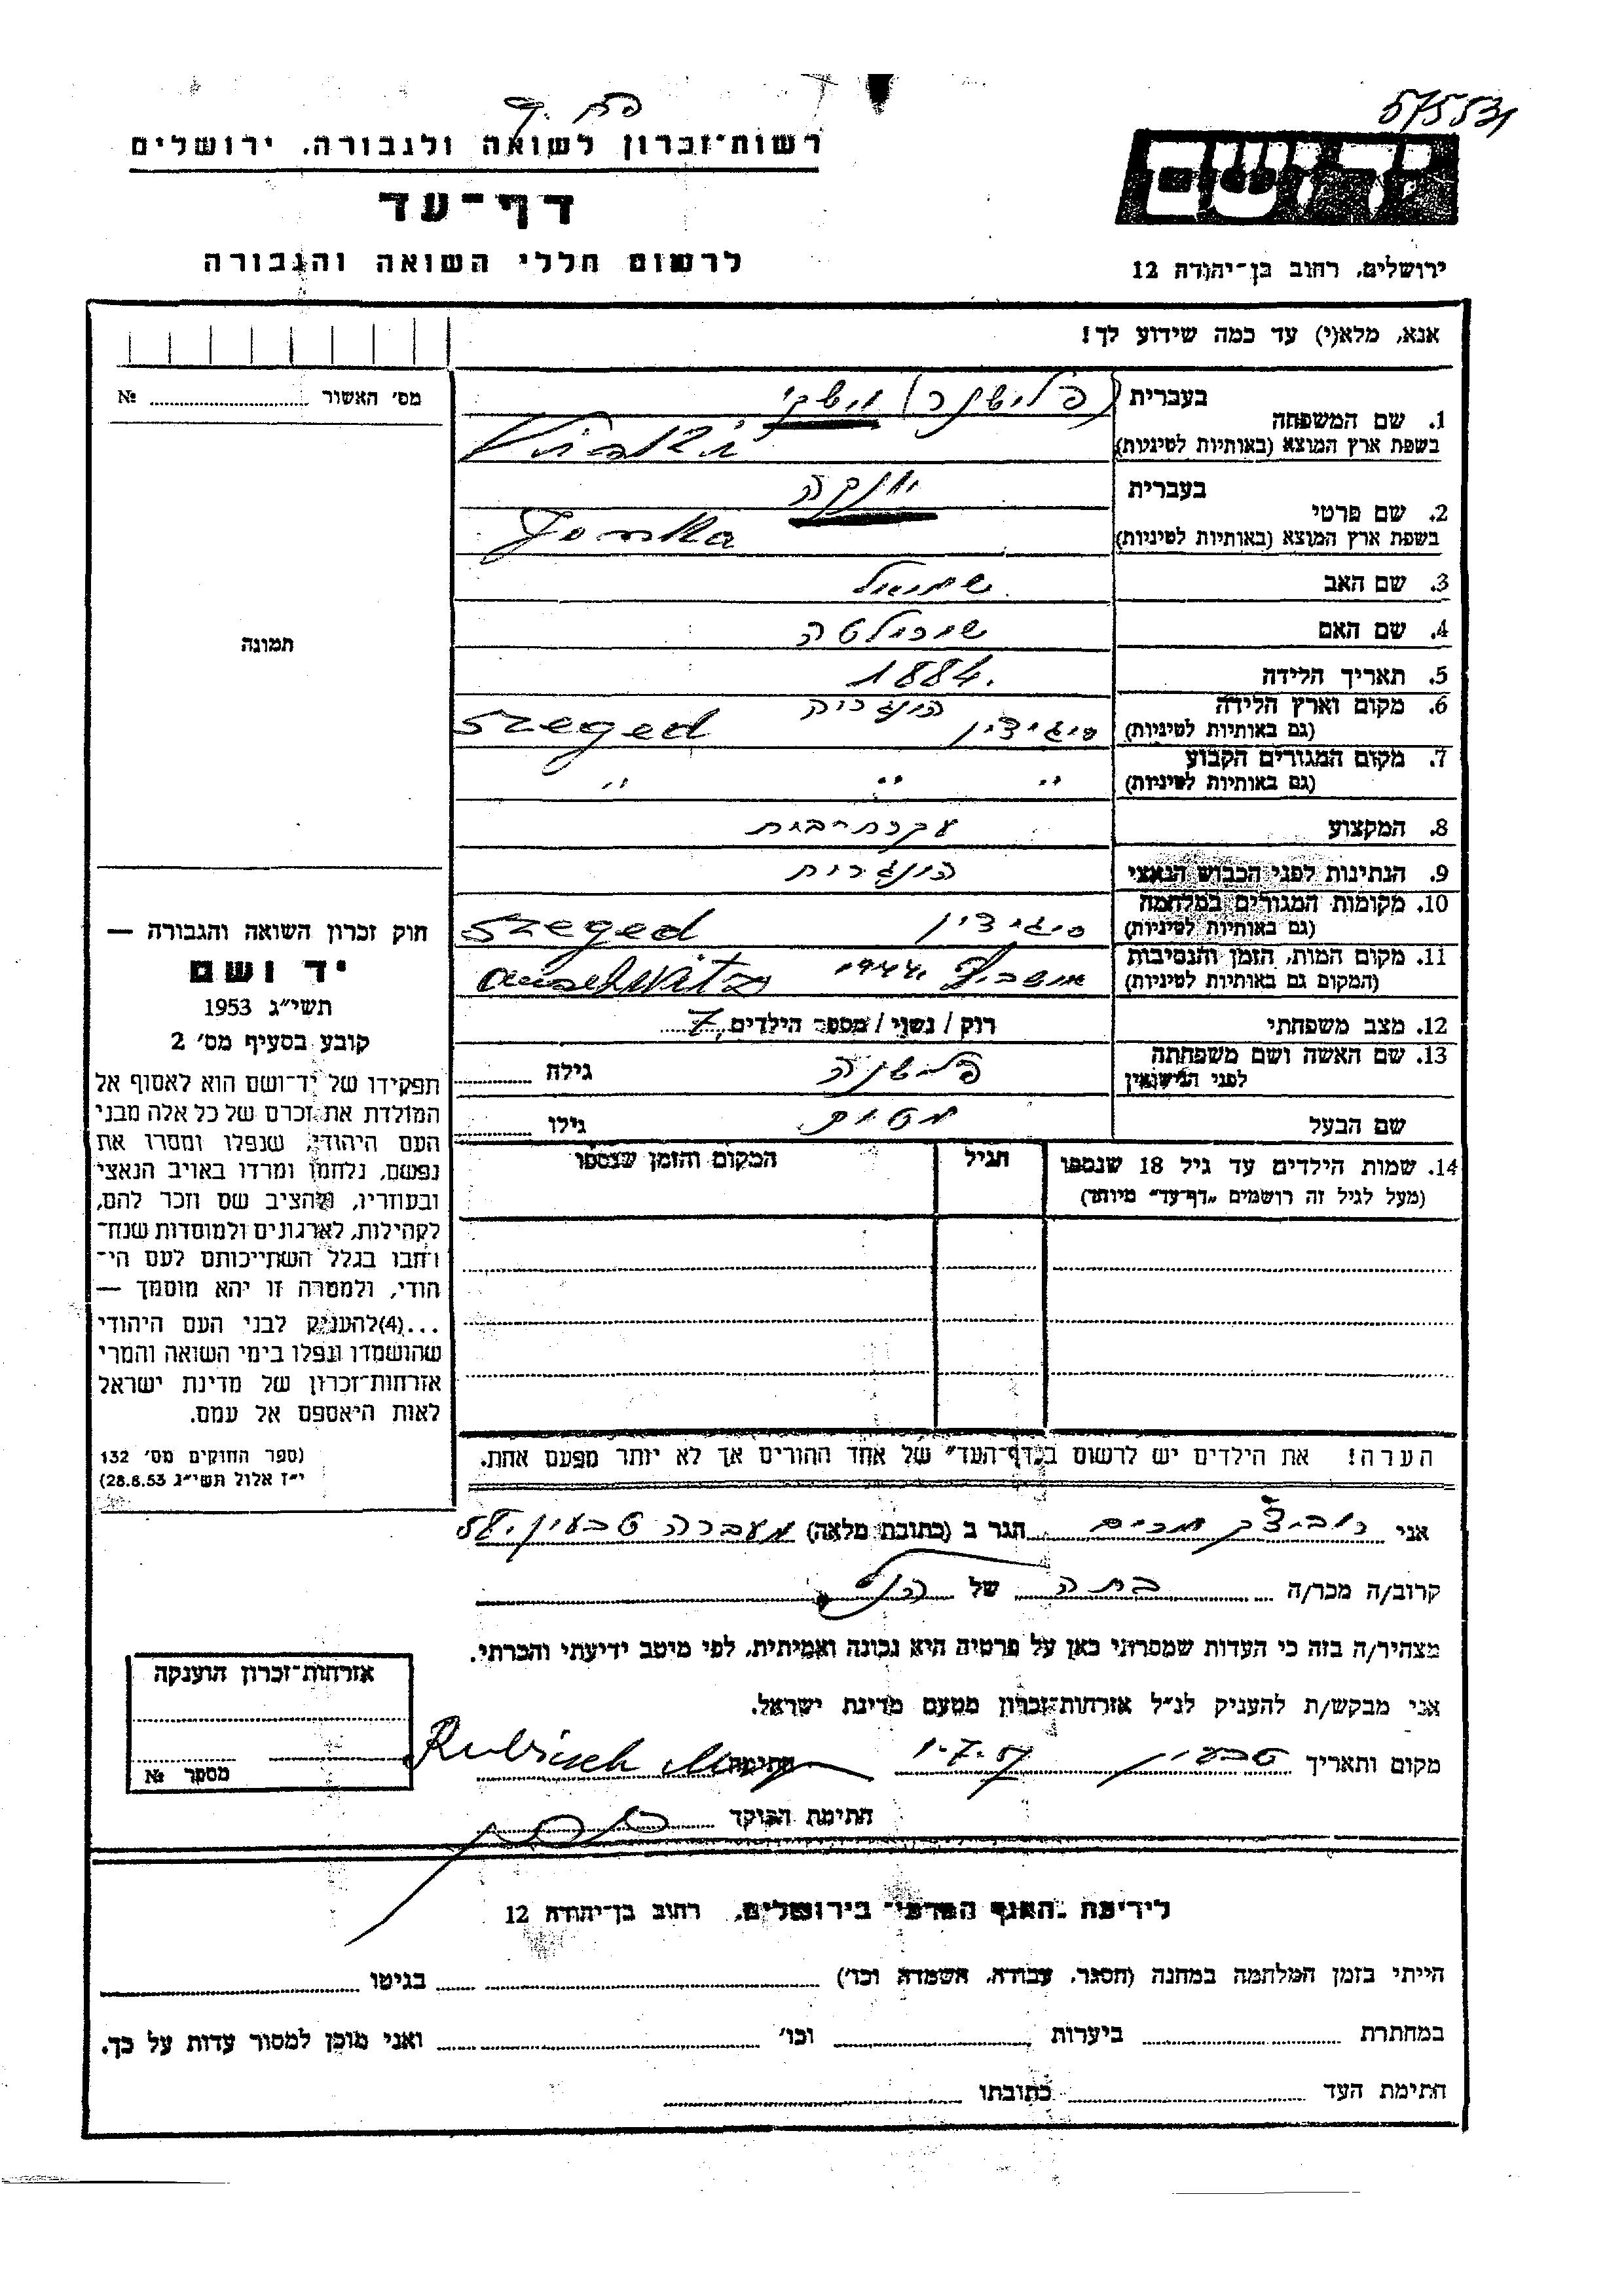 575531
רשות־זכרון לשואה ולגבורה, ירושלים
דף־עד
לרשום חללי השואה והגבורה
יד ושם
ירושלים, רחוב בן־יהודה 12
אנא, מלא(י) עד כמה שידוע לך!
מס׳ האשור № 
תמונה
1. שם המשפחה
בעברית (פלישנר) וישקי
בשפת ארץ המוצא (באותיות לטיניות)
2. שם פרטי
בעברית יונקה
בשפת ארץ המוצא (באותיות לטיניות) Jonka
3. שם האב שמואל
4. שם האם שרולטה
5. תאריך הלידה 1884.
6. מקום וארץ הלידה הונגריה
(גם באותיות לטיניות) סיגידין Szeged
7. מקום המגורים הקבוע
(גם באותיות לטיניות) " " "
8. המקצוע עקרת־בית
9. הנתינות לפני הכבוש הנאצי הונגרית
10. מקומות המגורים במלחמה
(גם באותיות לטיניות) סיגידין Szeged
11. מקום המות, הזמן והנסיבות
(המקום גם באותיות לטיניות) אושביץ 1944 Auschwitz
12. מצב משפחתי רווק / נשוי / מספר הילדים 7
13. שם האשה ושם משפחתה
לפני הנישואין גילה
שם הבעל גילו
14. שמות הילדים עד גיל 18 שנספו הגיל המקום והזמן שנספו
(מעל לגיל זה רושמים „דף־עד" מיוחד)
חוק זכרון השואה והגבורה —
יד ושם
תשי״ג 1953
קובע בסעיף מס׳ 2
תפקידו של יד־ושם הוא לאסוף אל
המולדת את זכרם של כל אלה מבני
העם היהודי, שנפלו ומסרו את
נפשם, נלחמו ומרדו באויב הנאצי
ובעוזריו, ולהציב שם וזכר להם,
לקהילות, לארגונים ולמוסדות שנח־
רחבו בגלל השתייכותם לעם הי־
הודי, ולמטרה זו יהא מוסמך —
...(4)להעניק לבני העם היהודי
שהושמדו ונפלו בימי השואה והמרי
אזרחות־זכרון של מדינת ישראל
לאות היאספם אל עמם.
(ספר החוקים מס׳ 132
י״ז אלול תשי״ג 28.8.53)
הערה! את הילדים יש לרשום ב„דף־העד" של אחד ההורים אך לא יותר מפעם אחת.
אני רוביצ'ק מרים הגר ב (כתובת מלאה) מעברה טבעון
קרוב/ה מכר/ה בתה של הנ"ל
מצהיר/ה בזה כי העדות שמסרתי כאן על פרטיה היא נכונה ואמיתית, לפי מיטב ידיעתי והכרתי.
אני מבקש/ת להעניק לנ״ל אזרחות־זכרון מטעם מדינת ישראל.
מקום ותאריך טבעון 1.7.57 חתימה
חתימת הפוקד
אזרחות־זכרון הוענקה
מספר №
לידיעת „האגף המדעי" בירושלים, רחוב בן־יהודה 12
הייתי בזמן המלחמה במחנה (הסגר, עבודה, השמדה וכו׳) בגיטו
במחתרת ביערות וכו׳ ואני מוכן למסור עדות על כך.
חתימת העד כתובתו